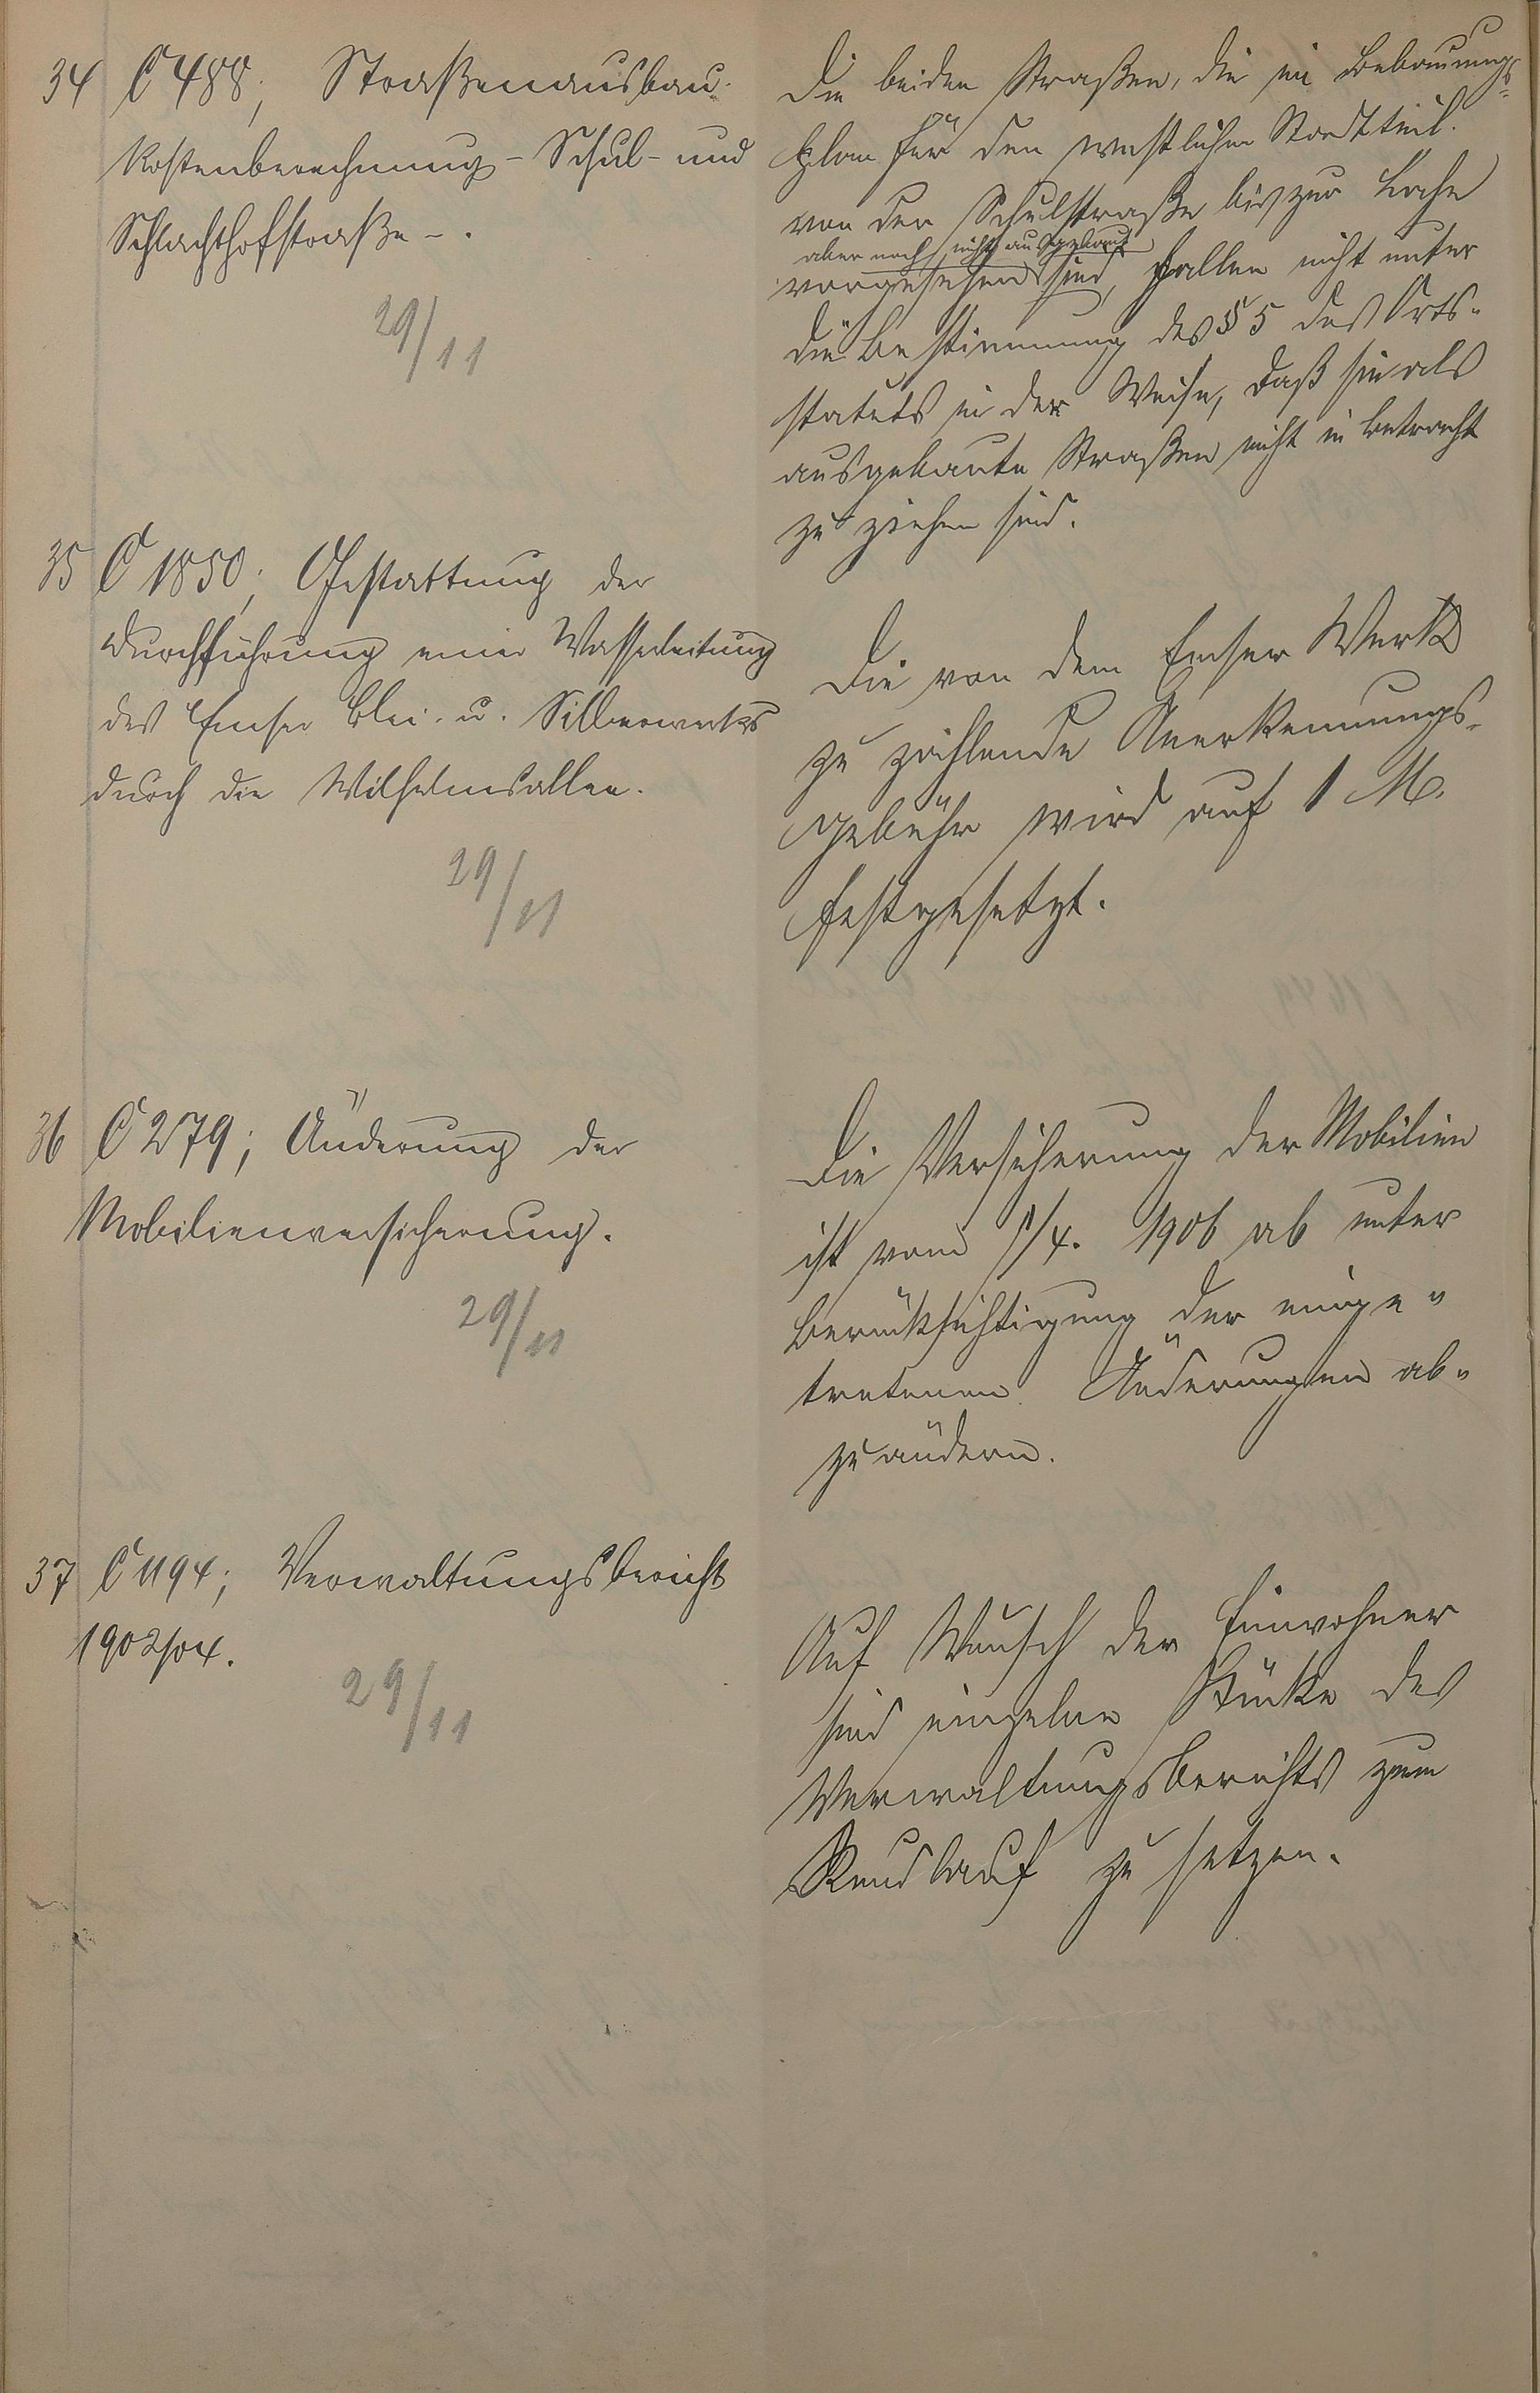 34 C 488; Straßenausbau-
Kostenberechnung - Schul- und
Schlachthofstraße -.
29/11
Die beiden Straßen, die im Bebauungs-
plan für den westlichen Stadtteil
von der Schulstraße bis zur Lahn
aber noch nicht ausgebaut
vorgesehen sind, fallen nicht unter
die Bestimmung des § 5 des Orts-
statuts in der Weise, daß sie als
ausgebaute Straßen nicht in Betracht
zu ziehen sind.
35 C 1850; Gestattung der
Durchführung einer Wasserleitung
des Emser Blei- u. Silberwerks
durch die Wilhelmsallee.
29/11
Die von dem Emser Werk
zu zahlende Anerkennungs-
gebühr wird auf 1 M.
festgesetzt.
36 C 279; Änderung der
Mobilienversicherung.
29/11
Die Versicherung der Mobilien
ist vom 1/4. 1906 ab unter
Berücksichtigung der einge-
tretenen Änderungen ab-
zuändern.
37 C 1194; Verwaltungsbericht
1902/04.
29/11
Auf Wunsch der Einwohner
sind einzelne Stücke des
Verwaltungsberichts zum
Rundlauf zu setzen.